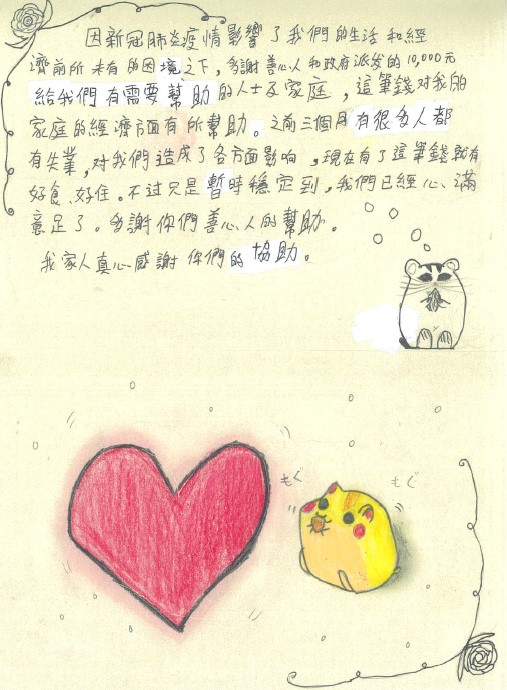 因新冠肺炎疫情影響了我們的生活和經
濟前所未有的困境之下，多謝善心人和政府派發的10,000元
給我們有需要幫助的人士及家庭，這筆錢對我的
家庭的經濟方面有所幫助。之前三個月有很多人都
有失業，對我們造成了各方面影响，現在有了這筆錢就有
好食、好住。不过只是暫時穩定到，我們已經心滿
意足了。多謝你們善心人的幫助。
我家人真心感謝你們的協助。
もぐ もぐ